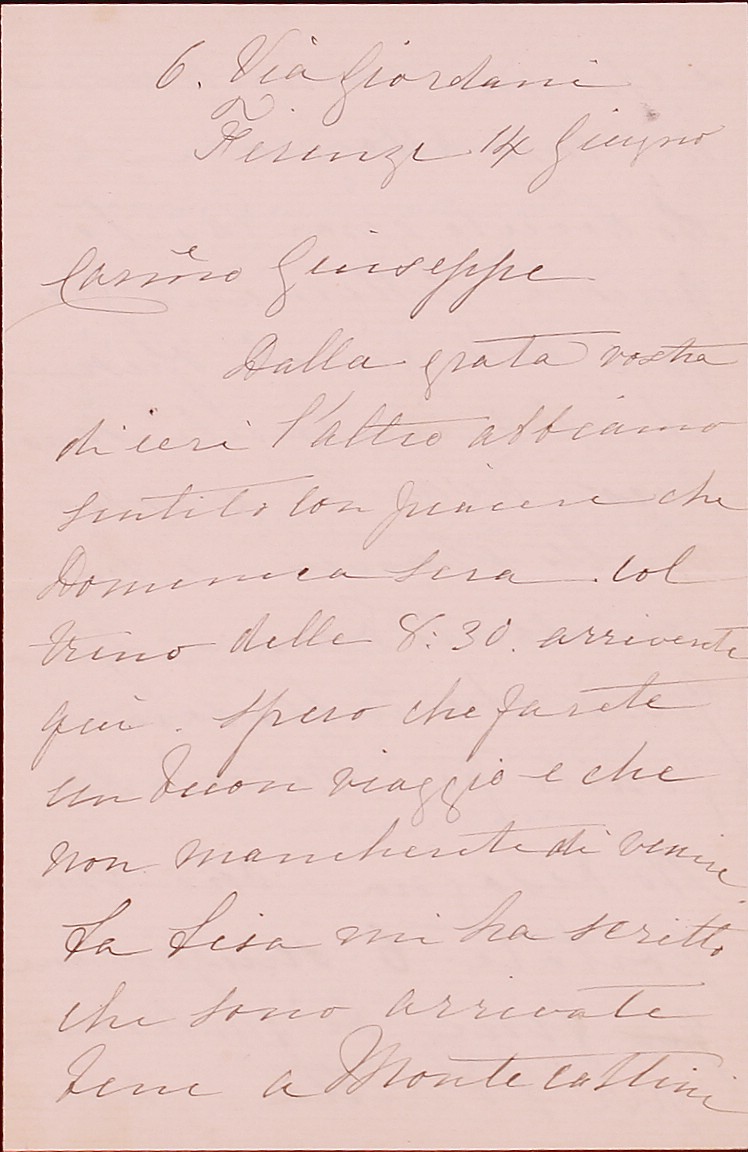 6. Via Giordani
Firenze 14 Giugno
Carimo Giuseppe
Dalla grata vostra
di ieri l'altro abbiamo
sentito con piacere che
Domenica sera col
treno delle 8:30. arriverete
qui. Spero che farete
un buon viaggio e che
non mancherete di venire.
La Lisa mi ha scritto
che sono arrivate
bene a Montecattini